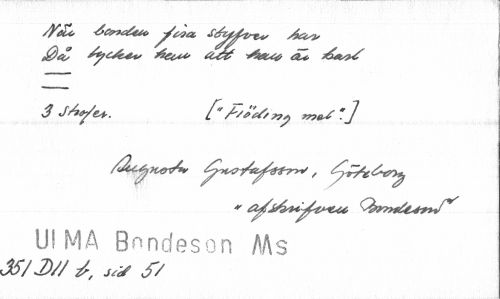 När bonden fira styfver har
Då tycker han att han är karl
3 strofer. ["Fröding mel".]
Augusta Gustafsson, Göteborg
"afskrifven Bondeson"
ULMA Bondeson Ms
351 D11 b, sid 51